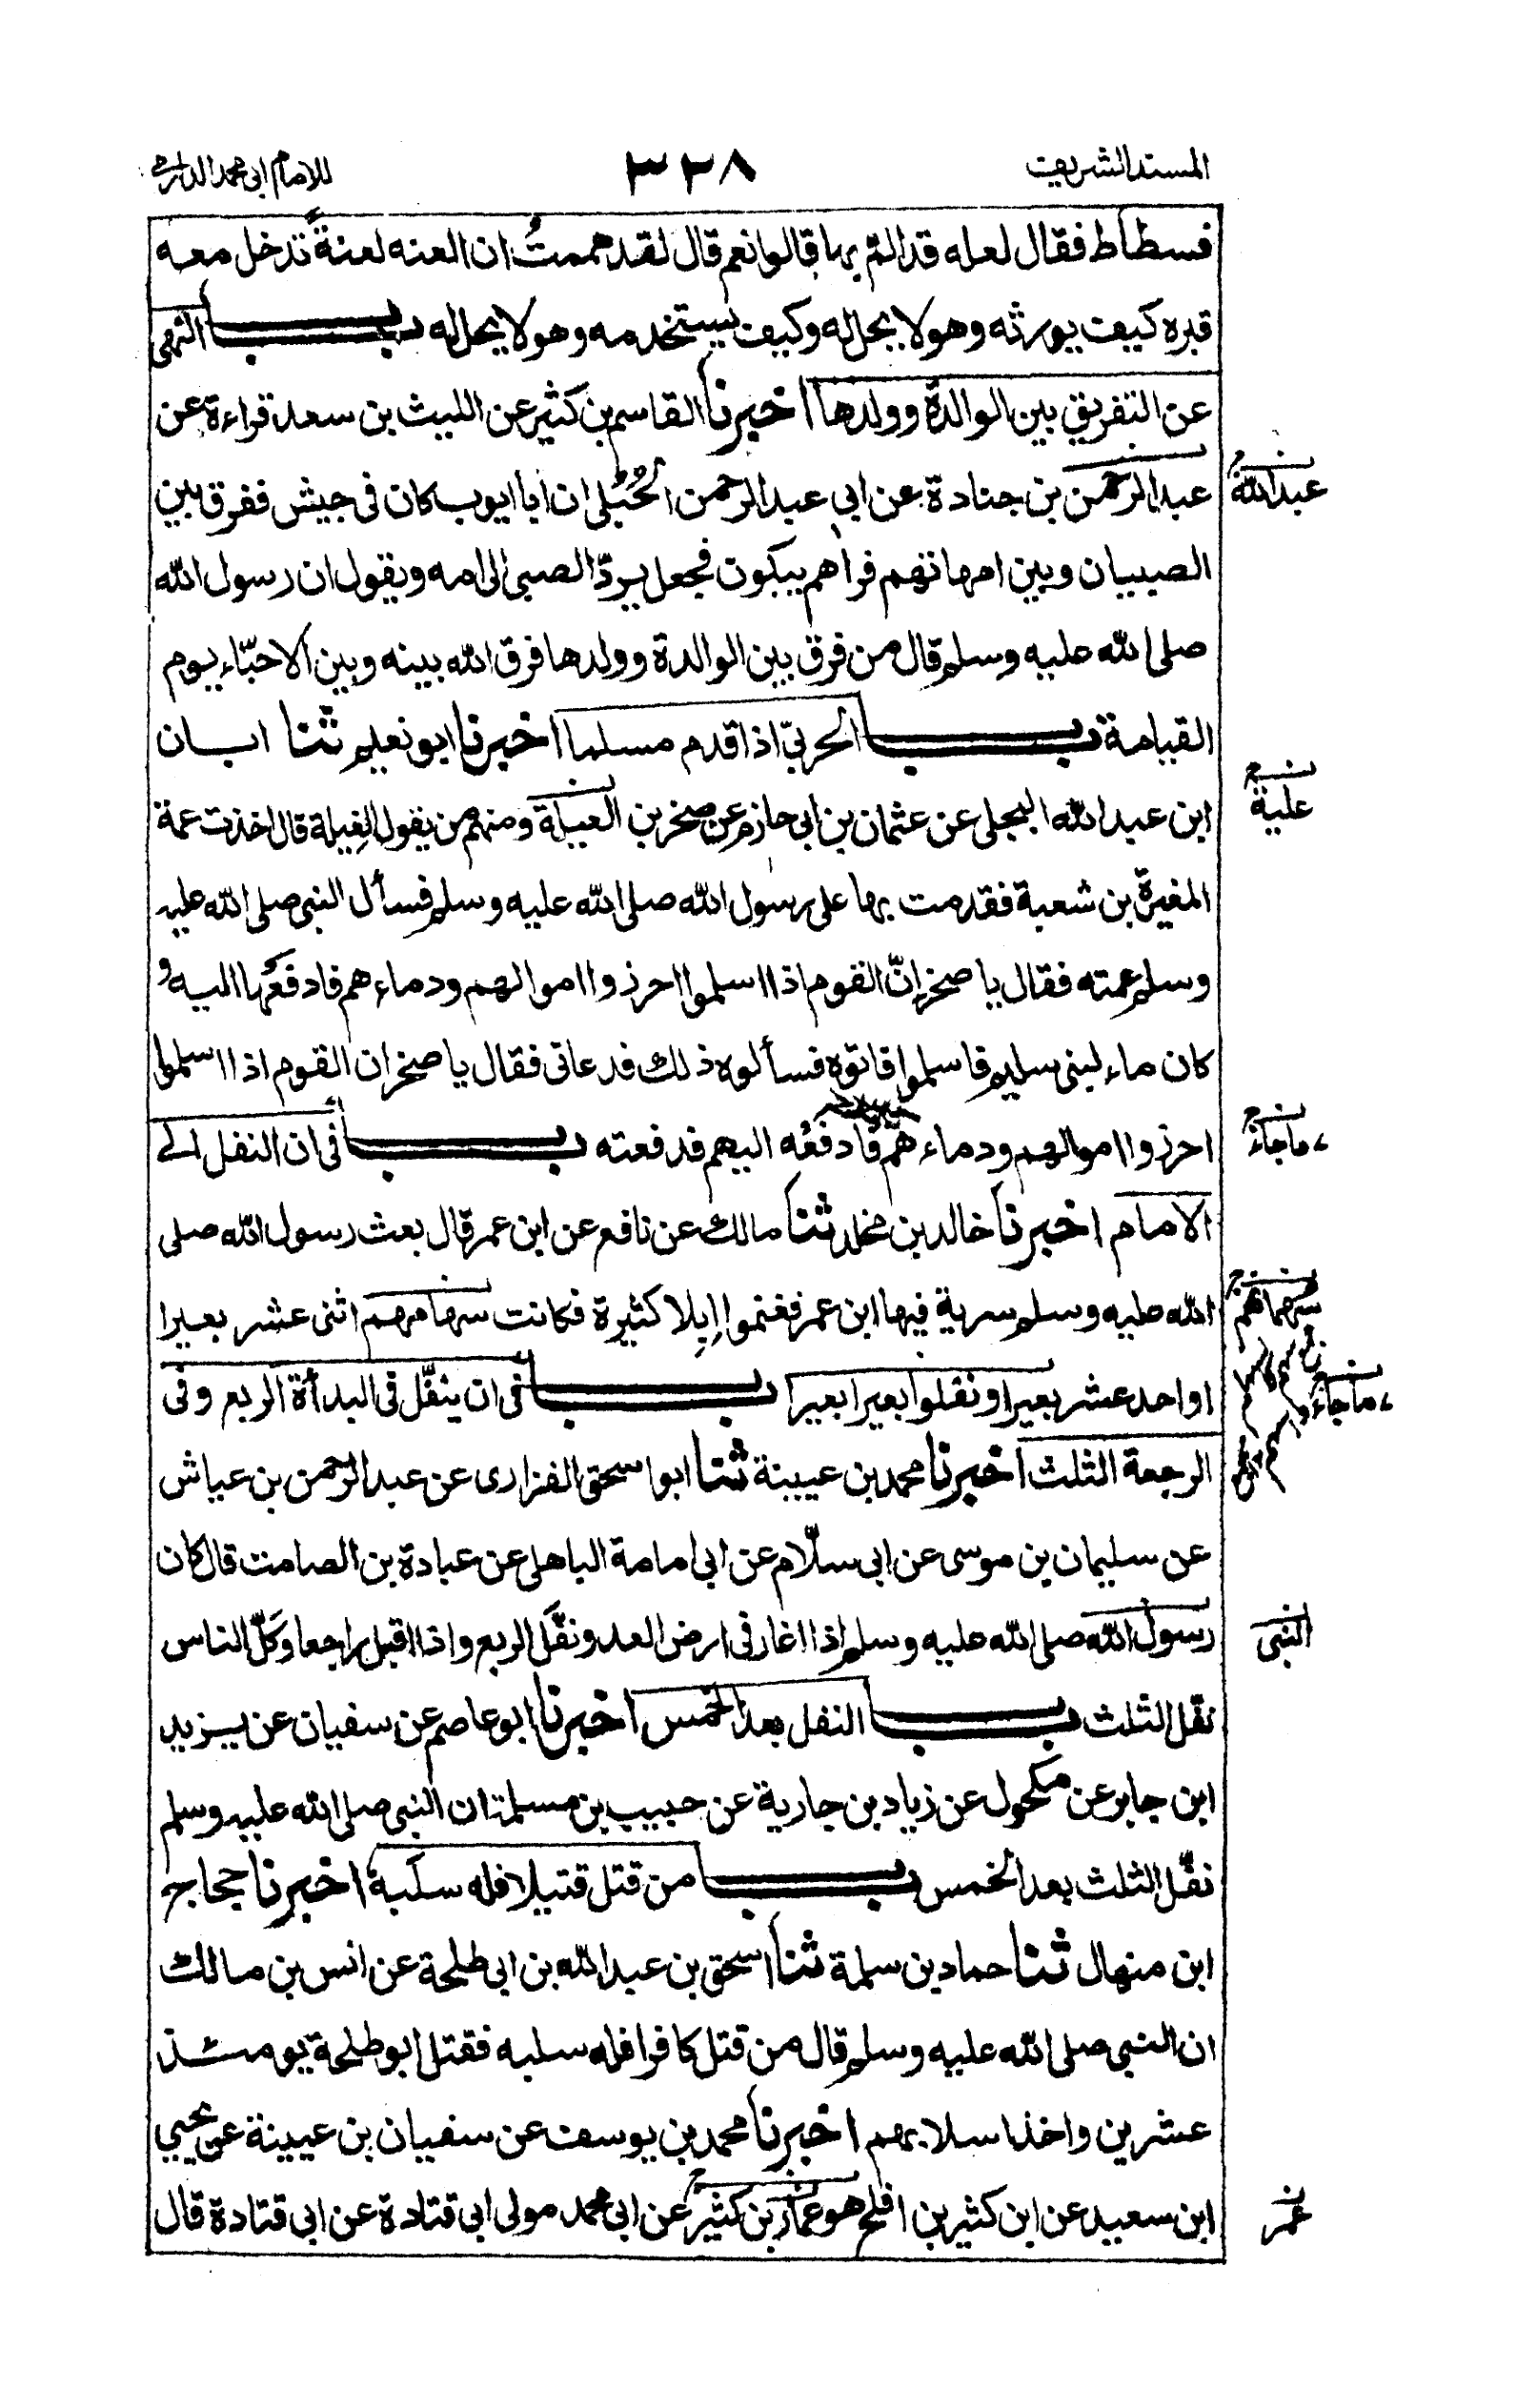 المسند الشريف ٣٣٨ للامام ابى محمد الدارمى
فسطاط فقال لعله قد المّ بها قالوا نعم قال لقد هممتُ ان العنه لعنةً تدخل معه
قبره كيف يورثه وهو لا يحل له وكيف يستخدمه وهو لا يحل له باب النهى
عن التفريق بين الوالدة وولدها اخبرنا القاسم بن كثير عن الليث بن سعد قراءة عن
عبد الرحمن بن جنادة عن ابى عبد الرحمن الحُبُلى ان ابا ايوب كان فى جيش ففرق بين
عبد الله
الصبيان وبين امهاتهم فراهم يبكون فجعل يردّ الصبى الى امه ويقول ان رسول الله
صلى الله عليه وسلم قال من فرق بين الوالدة وولدها فرق الله بينه وبين الاحبّاء يوم
القيامة باب الحربىّ اذا قدم مسلما اخبرنا ابو نعيم ثنا ابان
ابن عبد الله البجلى عن عثمان بن ابى حازم عن صخر بن العيلة ومنهم من يقول الغيلة قال اخذت عمة
علية
المغيرة بن شعبة فقدمت بها على رسول الله صلى الله عليه وسلم فسأل النبى صلى الله عليه
وسلم عمته فقال يا صخر إنّ القوم اذا اسلموا احرزوا اموالهم ودماءهم فادفعها اليه و
كان ماء لبنى سليم فاسلموا فاتوه فسألوه ذلك فدعانى فقال يا صخر ان القوم اذا اسلموا
احرزوا اموالهم ودماءهم فادفعه اليهم فدفعته باب فى ان النفل الى
ما جاء
الامام اخبرنا خالد بن مخلد ثنا مالك عن نافع عن ابن عمر قال بعث رسول الله صلى
الله عليه وسلم سرية فيها ابن عمر فغنموا إبلا كثيرة فكانت سهامهم اثنى عشر بعيرا
سهمانهم
او احد عشر بعيرا ونفلوا بعيرا بعيرا باب فى ان ينفّل فى البدأة الربع وفى
ما جاء
الرجعة الثلث اخبرنا محمد بن عيينة ثنا ابو اسحق الفزارى عن عبد الرحمن بن عياش
عن سليمان بن موسى عن ابى سلّام عن ابى امامة الباهلى عن عبادة بن الصامت قال كان
رسول الله صلى الله عليه وسلم اذا اغار فى ارض العدو نفّل الربع واذا اقبل راجعا وكلّ الناس
النبى
نفّل الثلث باب النفل بعد الخمس اخبرنا ابو عاصم عن سفيان عن يزيد
ابن جابر عن مكحول عن زياد بن جارية عن حبيب بن مسلمة ان النبى صلى الله عليه وسلم
نفّل الثلث بعد الخمس باب من قتل قتيلا فله سلَبه اخبرنا حجاج
ابن منهال ثنا حماد بن سلمة ثنا اسحق بن عبد الله بن ابى طلحة عن انس بن مالك
ان النبى صلى الله عليه وسلم قال من قتل كافرا فله سلبه فقتل ابو طلحة يومئذ
عشرين واخذ اسلابهم اخبرنا محمد بن يوسف عن سفيان بن عيينة عن يحيى
ابن سعيد عن ابن كثير بن افلح هو عمار بن كثير عن ابى محمد مولى ابى قتادة عن ابى قتادة قال
عمر